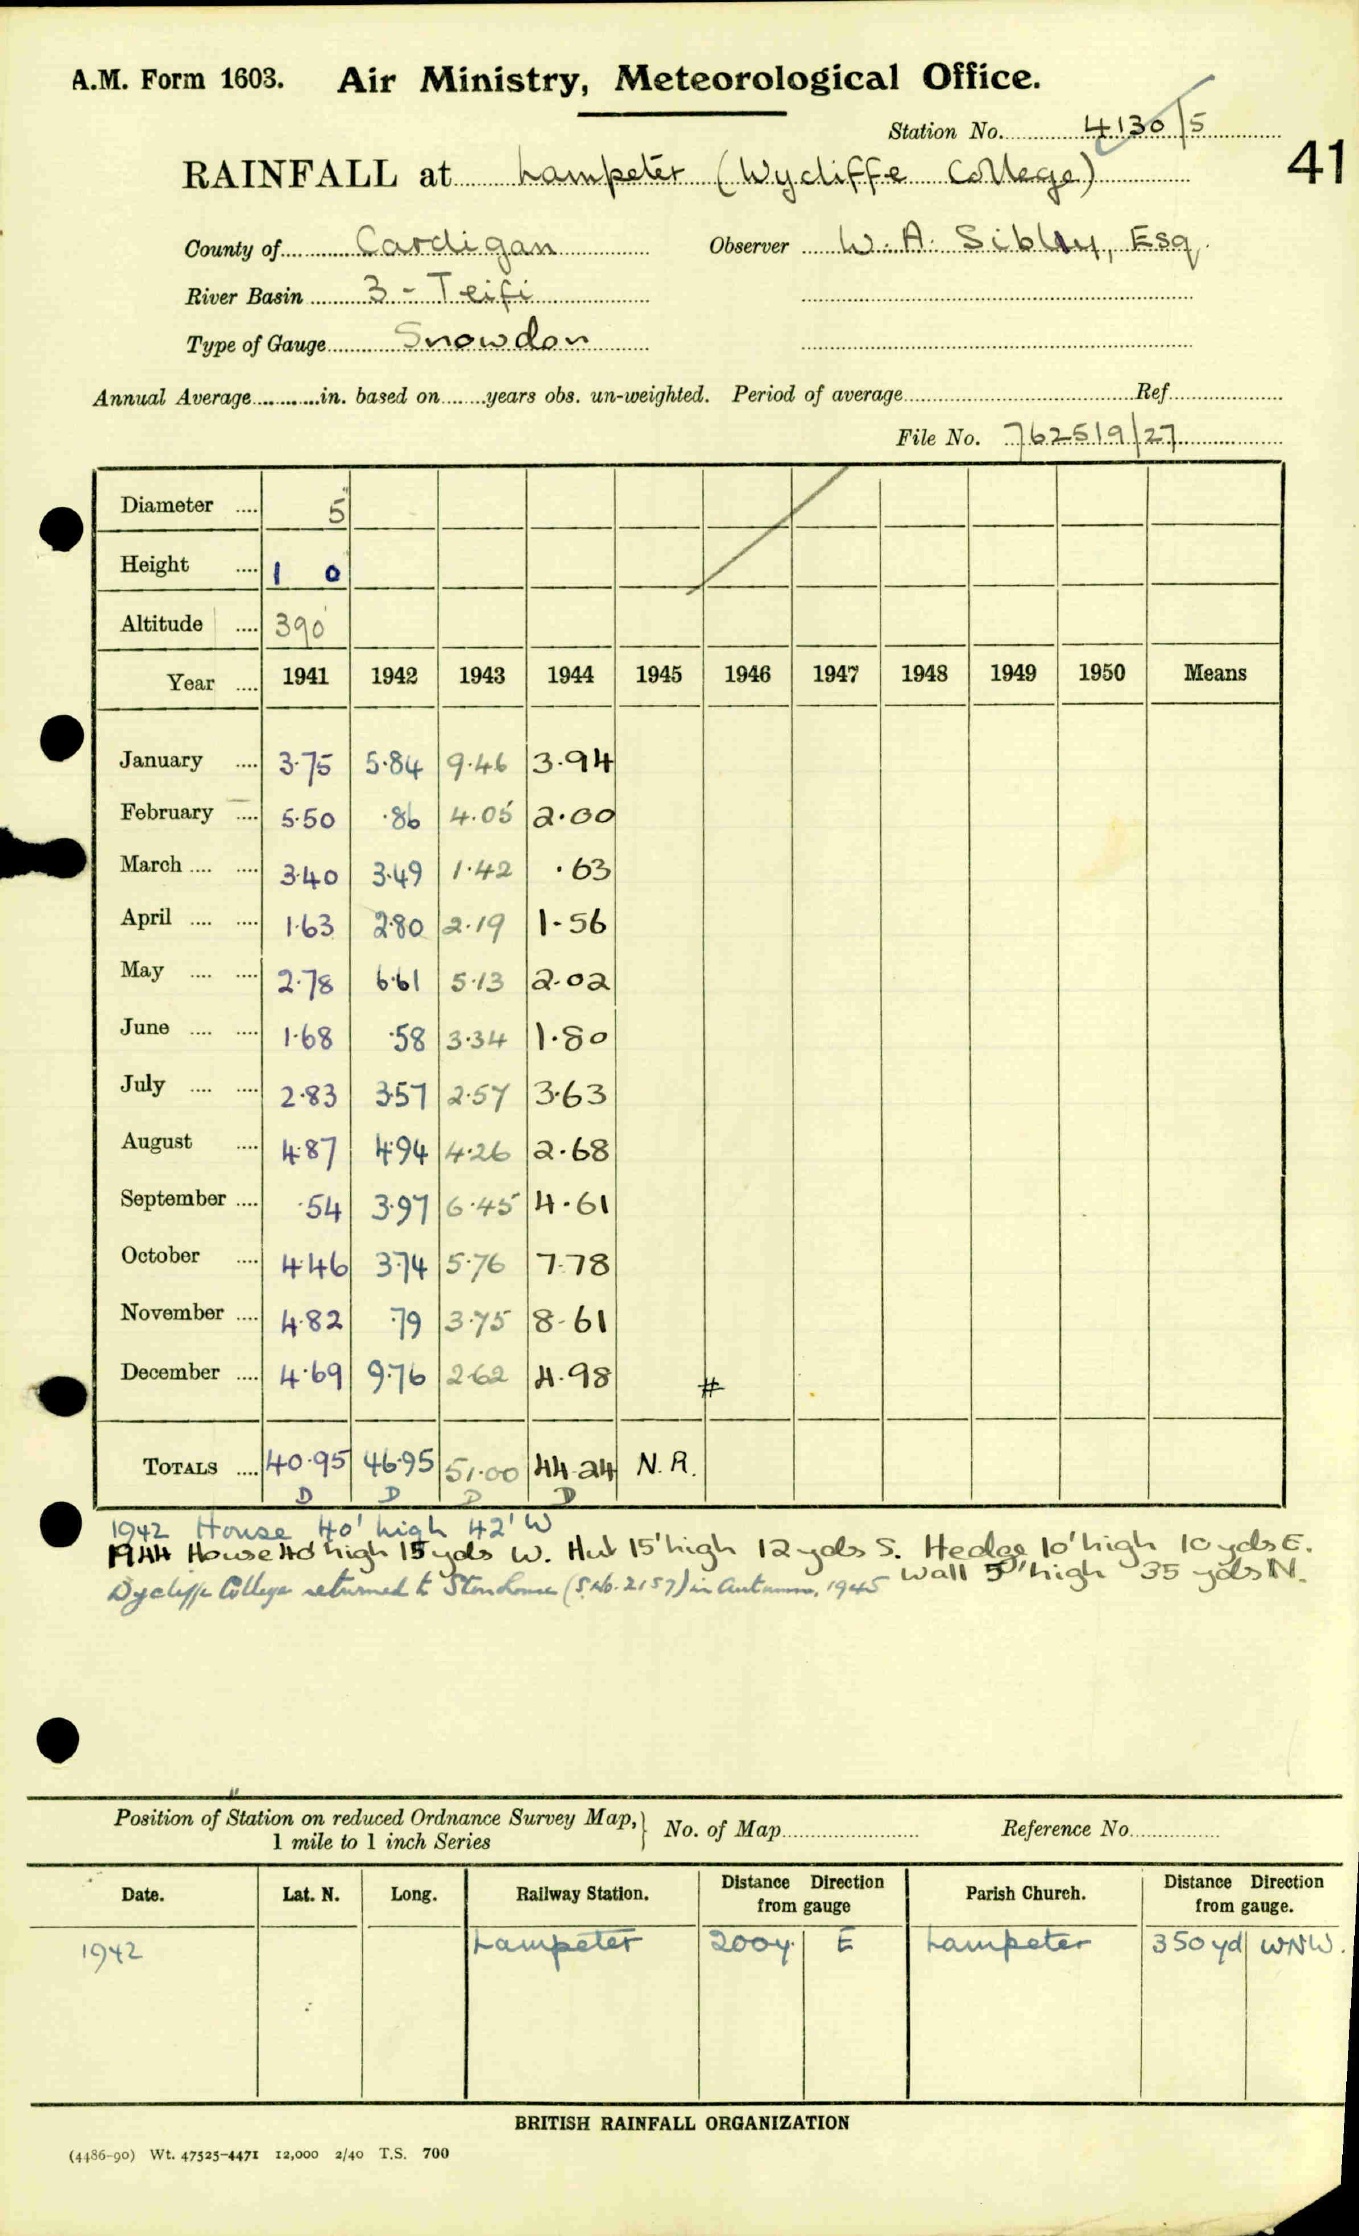 A.M. Form 1603. Air Ministry, Meteorological Office.
Station No. 4130/5
41
RAINFALL at Lampeter (Wycliffe College)
County of Cardigan Observer W. A. Sibly, Esq.
River Basin 3 - Teifi
Type of Gauge Snowdon
Annual Average in. based on years obs. un-weighted. Period of average Ref.
File No. 762519/27
Diameter 5"
Height 1 0
Altitude 390'
Year 1941 1942 1943 1944 1945 1946 1947 1948 1949 1950 Means
January 3·75 5·84 9·46 3·94
February 5·50 ·86 4·05 2·00
March 3·40 3·49 1·42 ·63
April 1·63 2·80 2·19 1·56
May 2·78 6·61 5·13 2·02
June 1·68 ·58 3·34 1·80
July 2·83 3·57 2·57 3·63
August 4·87 4·94 4·26 2·68
September ·54 3·97 6·45 4·61
October 4·46 3·74 5·76 7·78
November 4·82 ·79 3·75 8·61
December 4·69 9·76 2·62 4·98 #
TOTALS 40·95 46·95 51·00 44·24 N.R.
D D D D
1942 House 40' high 42' W
1944 House 40' high 15 yds W. Hut 15' high 12 yds S. Hedge 10' high 10 yds E.
Wall 5' high 35 yds N.
Wycliffe College returned to Stonehouse (S.No. 2157) in Autumn, 1945
Position of Station on reduced Ordnance Survey Map, 1 mile to 1 inch Series } No. of Map Reference No.
Date. Lat. N. Long. Railway Station. Distance Direction from gauge Parish Church. Distance Direction from gauge.
1942 Lampeter 200y E Lampeter 350yd WNW.
BRITISH RAINFALL ORGANIZATION
(4486-90) Wt. 47525-4471 12,000 2/40 T.S. 700